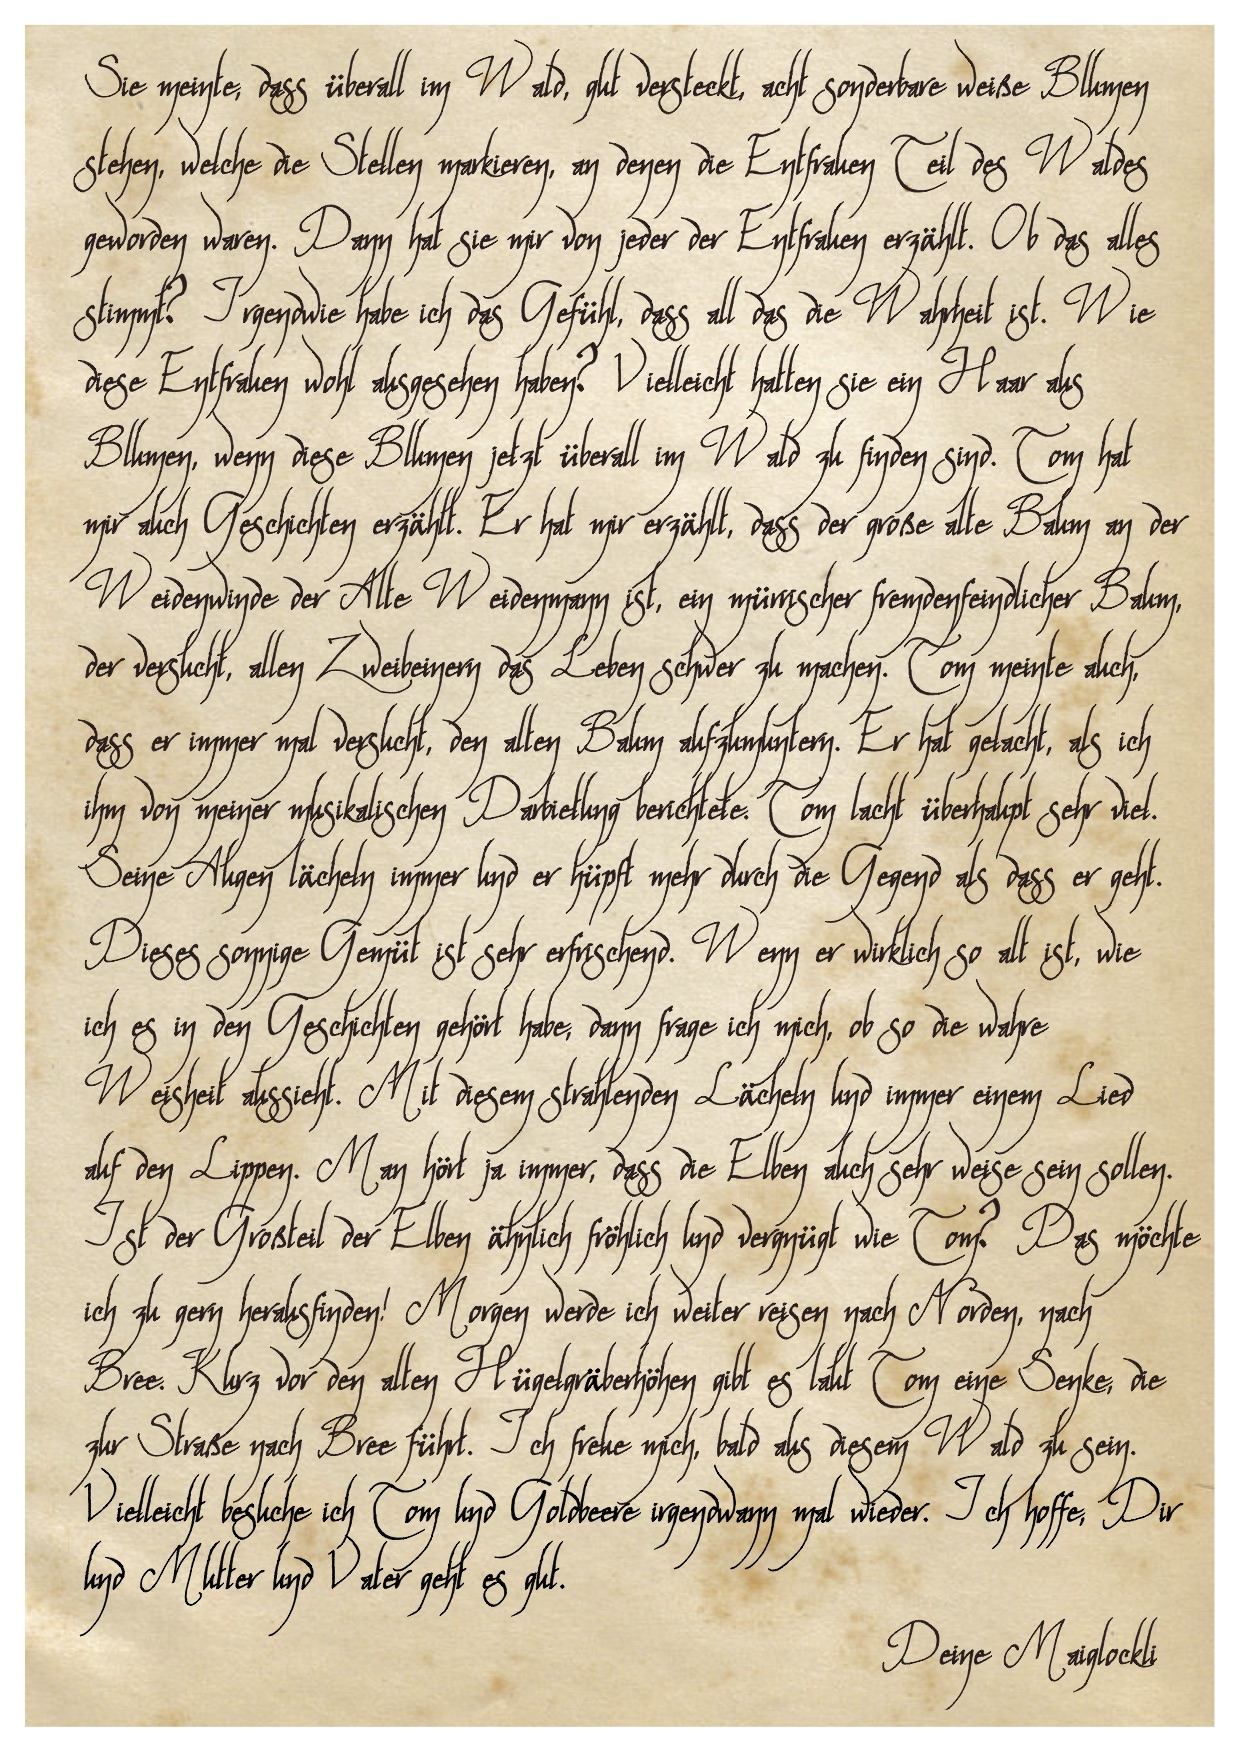 Sie meinte, dass überall im Wald, gut versteckt, acht sonderbare weiße Blumen
stehen, welche die Stellen markieren, an denen die Entfrauen Teil des Waldes
geworden waren. Dann hat sie mir von jeder der Entfrauen erzählt. Ob das alles
stimmt? Irgendwie habe ich das Gefühl, dass all das die Wahrheit ist. Wie
diese Entfrauen wohl ausgesehen haben? Vielleicht hatten sie ein Haar aus
Blumen, wenn diese Blumen jetzt überall im Wald zu finden sind. Tom hat
mir auch Geschichten erzählt. Er hat mir erzählt, dass der große alte Baum an der
Weidenwinde der Alte Weidenmann ist, ein mürrischer fremdenfeindlicher Baum,
der versucht, allen Zweibeinern das Leben schwer zu machen. Tom meinte auch,
dass er immer mal versucht, den alten Baum aufzumuntern. Er hat gelacht, als ich
ihm von meiner musikalischen Darbietung berichtete. Tom lacht überhaupt sehr viel.
Seine Augen lächeln immer und er hüpft mehr durch die Gegend als dass er geht.
Dieses sonnige Gemüt ist sehr erfrischend. Wenn er wirklich so alt ist, wie
ich es in den Geschichten gehört habe, dann frage ich mich, ob so die wahre
Weisheit aussieht. Mit diesem strahlenden Lächeln und immer einem Lied
auf den Lippen. Man hört ja immer, dass die Elben auch sehr weise sein sollen.
Ist der Großteil der Elben ähnlich fröhlich und vergnügt wie Tom? Das möchte
ich zu gern herausfinden! Morgen werde ich weiter reisen nach Norden, nach
Bree. Kurz vor den alten Hügelgräberhöhen gibt es laut Tom eine Senke, die
zur Straße nach Bree führt. Ich freue mich, bald aus diesem Wald zu sein.
Vielleicht besuche ich Tom und Goldbeere irgendwann mal wieder. Ich hoffe, Dir
und Mutter und Vater geht es gut.
Deine Maiglockli